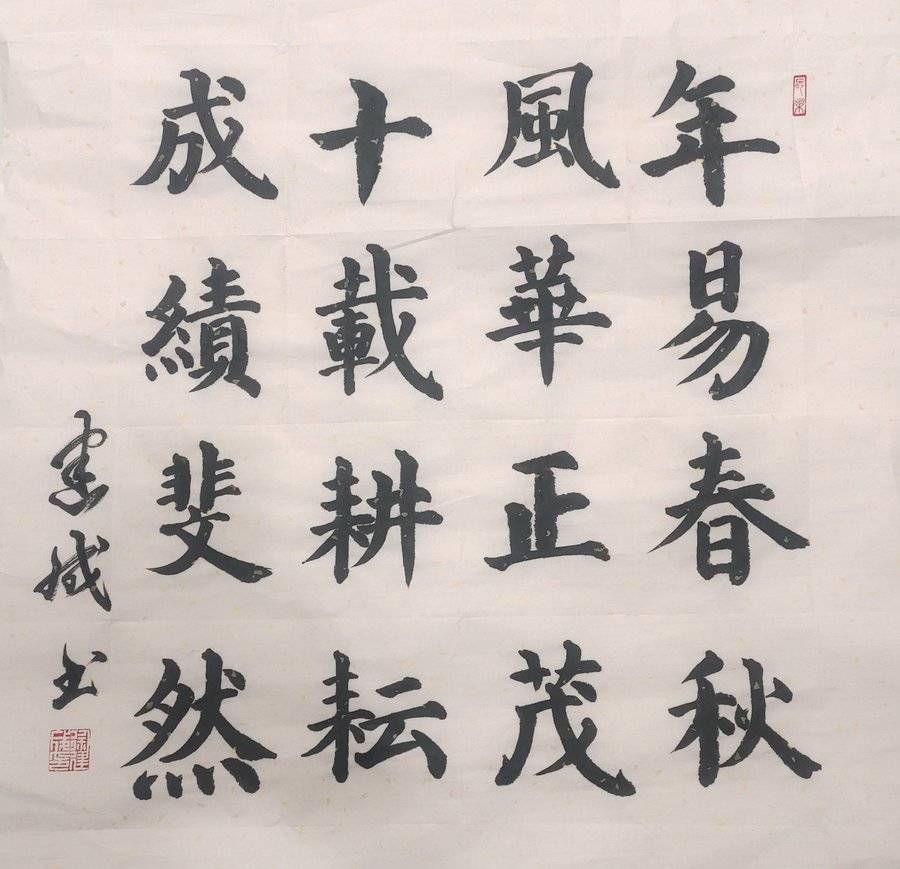 年易春秋
風華正茂
十載耕耘
成績斐然
建城书